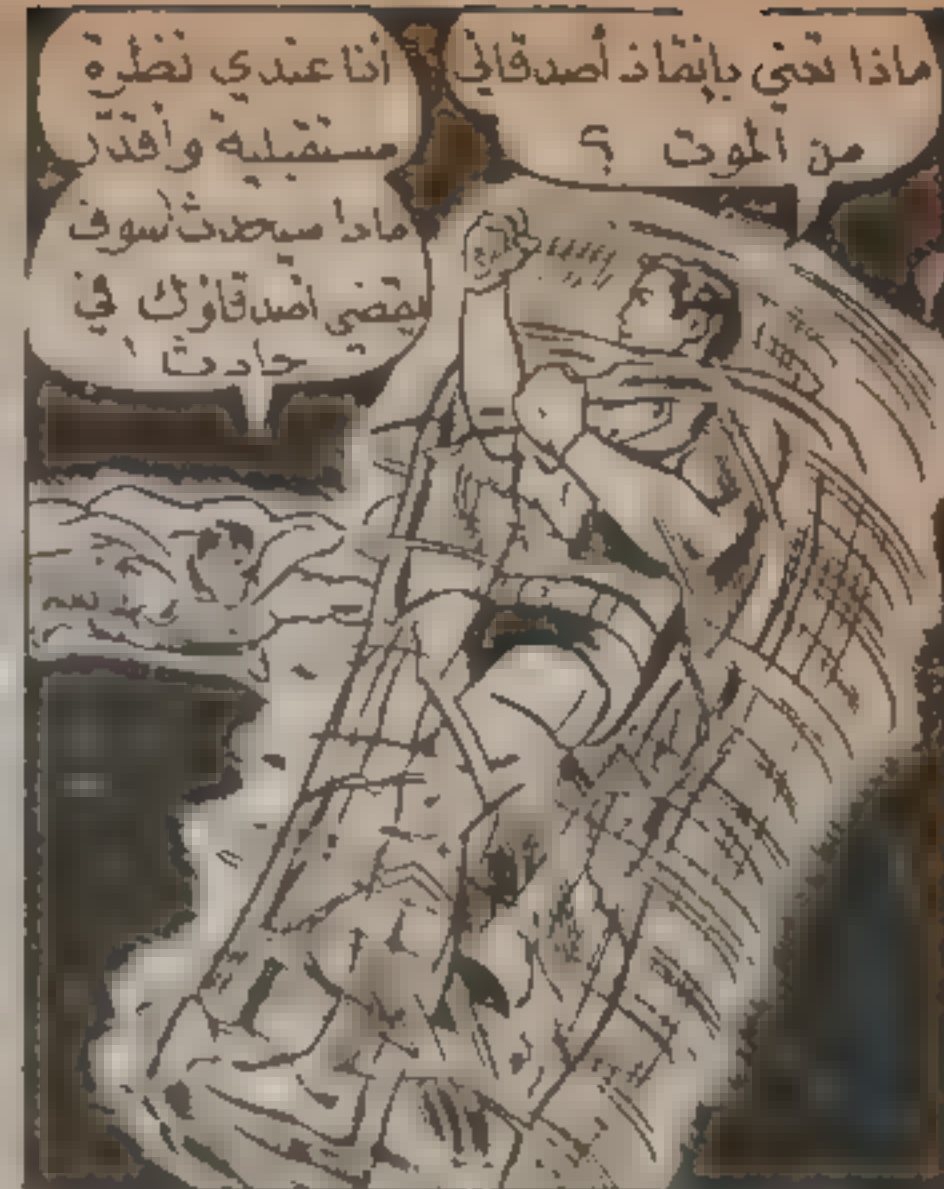 ماذا تعني بإنقاذ أصدقائي
من الموت ؟
أنا عندي نظرة
مستقبلية وأقدر
ماذا سيحدث سوف
يمضي أصدقاؤك في
حادث !